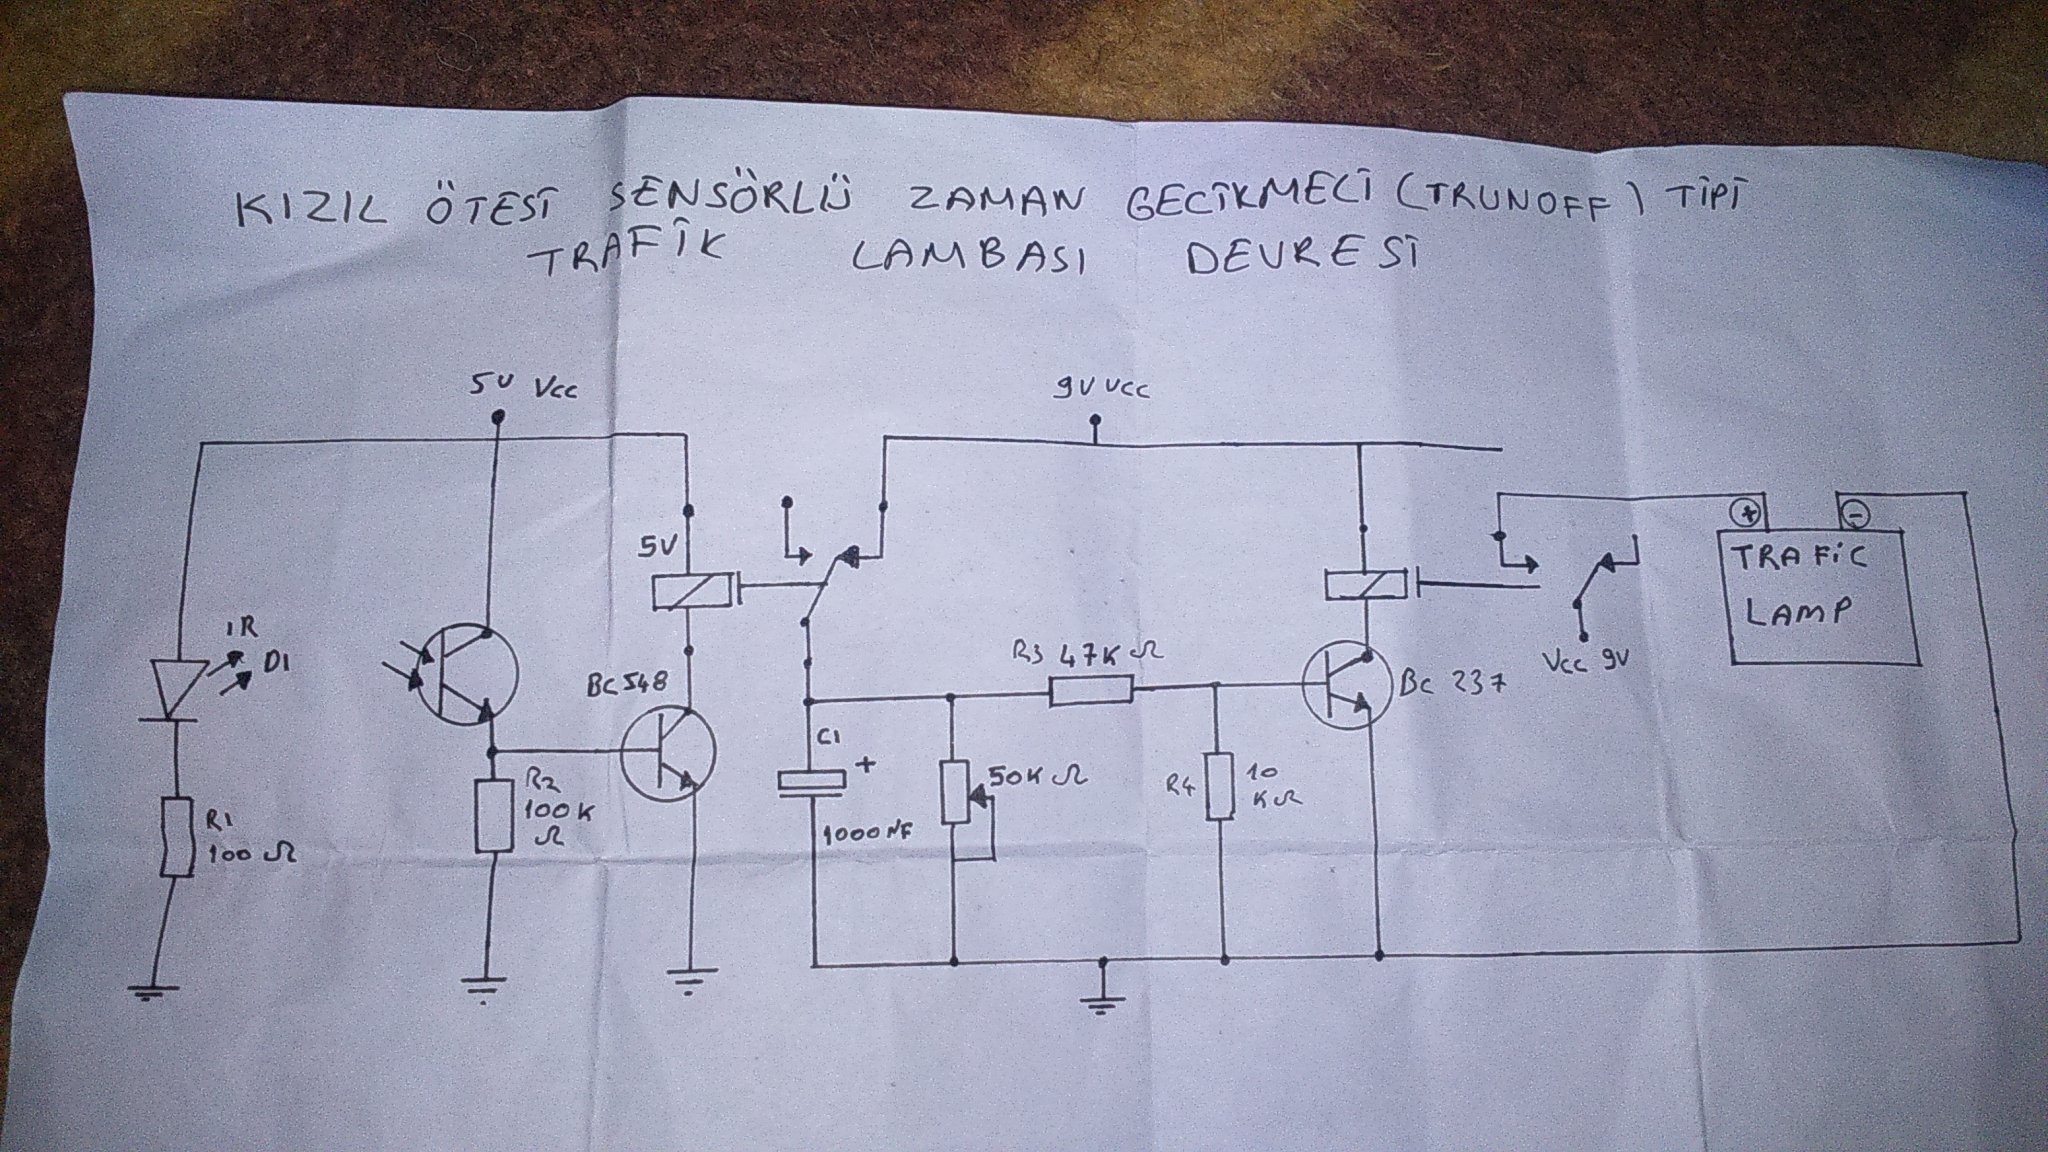 KIZIL ÖTESİ SENSÖRLÜ ZAMAN GECİKMELİ (TRUNOFF) TİPİ
TRAFİK LAMBASI DEVRESİ
5V Vcc
9V Vcc
5V
+
-
TRAFiC
LAMP
IR
D1
BC 548
R3 47K Ω
BC 237
Vcc 9V
C1
+
R2
100K
Ω
50K Ω
R4
10
KΩ
R1
100 Ω